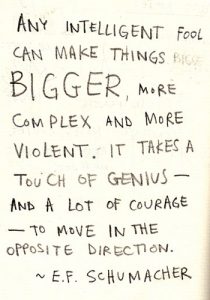 ANY INTELLIGENT FOOL
CAN MAKE THINGS BIGGE
BIGGER, MORE
COMPLEX AND MORE
VIOLENT. IT TAKES A
TOUCH OF GENIUS —
AND A LOT OF COURAGE
— TO MOVE IN THE
OPPOSITE DIRECTION.
~ E.F. SCHUMACHER